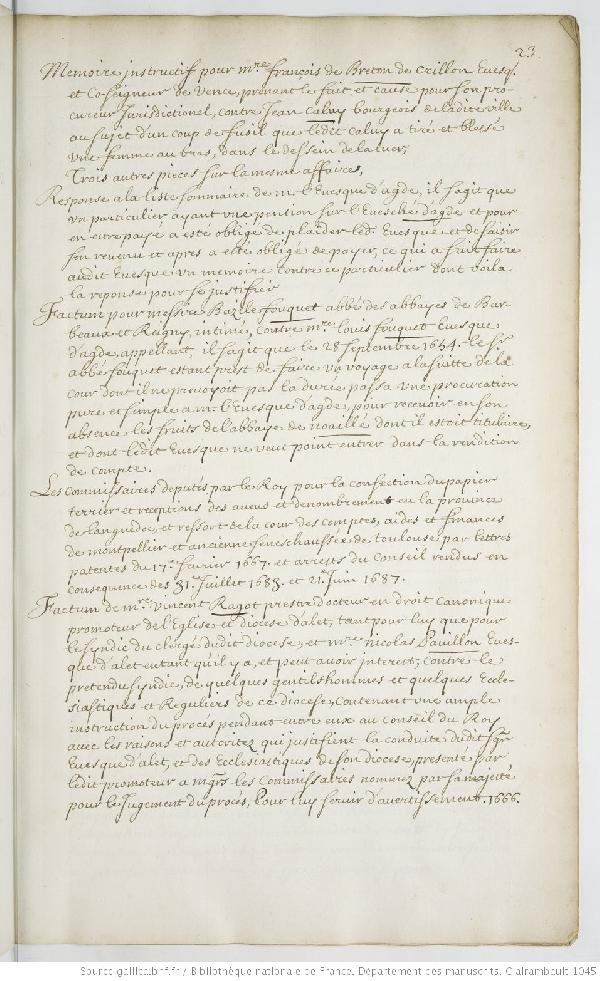 23
Memoire instructif pour m.re françois de Breton de Crillon Evesq.
et Coseigneur de Vence, prenant le fait et cause pour son pro-
cureur Jurisdictionel, contre Jean Calvy bourgeois de ladite ville
au sujet d'un coup de fusil que ledit Calvy a tiré et blessé
vne femme au bras, dans le dessein de la tuer,
Trois autres pieces sur la mesme affaires,
Response a la liste sommaire de mr l'Evesque d'agde, il s'agit que
vn particulier ayant vne pention sur l'Evesché d'agde et pour
en estre payé a esté obligé de plaider led. Evesque et de saisir
son revenu et apres a esté obligé de payer, ce qui a fait faire
audit Evesque vn memoire contre ce particulier dont voila
la reponse pour se justifier
Factum pour messire Bazile fouquet abbé des abbayes de Bar-
beaux et Reigny, intimé, Contre m.re louis fouquet Evesque
d'agde, appellant, il s'agit que le 28 Septembre 1654. le S.r
abbé fouquet estant prest de faire vn voyage a la suitte de la
Cour dont il ne prevoyoit pas la durée passa vne procuration
pure et simple a mr l'Evesque d'agde, pour recevoir en son
absence les fruits de l'abbaye de noaillé dont il estoit titulaire,
et dont ledit Evesque ne veut point entrer dans la reddition
de compte.
Les Commissaires deputés par le Roy pour la confection du papier
terrier et receptions des aveus et denombrement en la province
de languedoc, et ressort de la cour des comptes, aides et finances
de montpellier et ancienne seneschaussée de toulouse par lettres
patentes du 17.e fevrier 1667. et arrests du Conseil rendus en
consequence des 31. Juillet 1683. et 21. Juin 1687.
Factum de m.re Vincent Ragot prestre docteur en droit canonique
promoteur de l'Eglise et diocese d'alet, tant pour luy que pour
le syndic du clergé dudit diocese, et m.re nicolas Pavillon Eves-
que d'alet entant qu'il y a, et peut avoir interest, contre le
pretendu syndic, de quelques gentilshommes et quelques Eccle-
siastiques et Reguliers de ce diocese, Contenant vne ample
instruction du procés pendant entre eux au conseil du Roy
avec les raisons et autoritez qui justifient la conduite dudit Sgr
Evesque d'alet, et des Ecclesiastiques de son diocese, presenté par
ledit promoteur a mgrs les Commissaires nommez par sa majesté
pour le Jugement du procés, Pour luy servir d'avertissement. 1666.
Source gallica.bnf.fr / Bibliothèque nationale de France. Département des manuscrits. Clairambault 1045